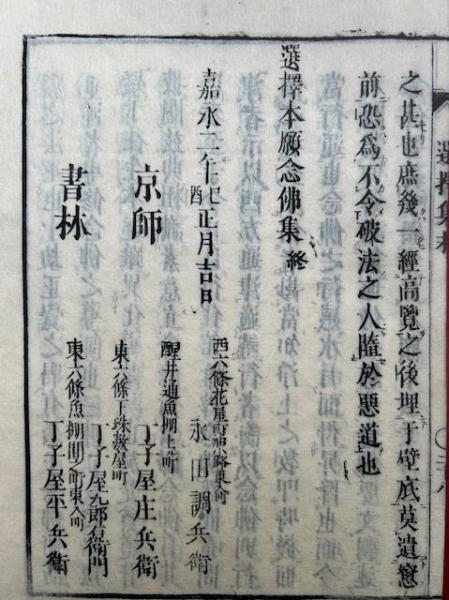 之甚也庶幾一經高覽之後埋于壁底莫遺窻
前恐爲不令破法之人墮於惡道也
選擇本願念佛集 終
嘉永二年己酉正月吉日
京師
書林
西六條花屋町
永田調兵衞
醒井通魚棚上町
丁子屋庄兵衞
東六條下珠数屋町
丁子屋九郎右衞門
東六條魚棚間之町東入町
丁子屋平兵衞